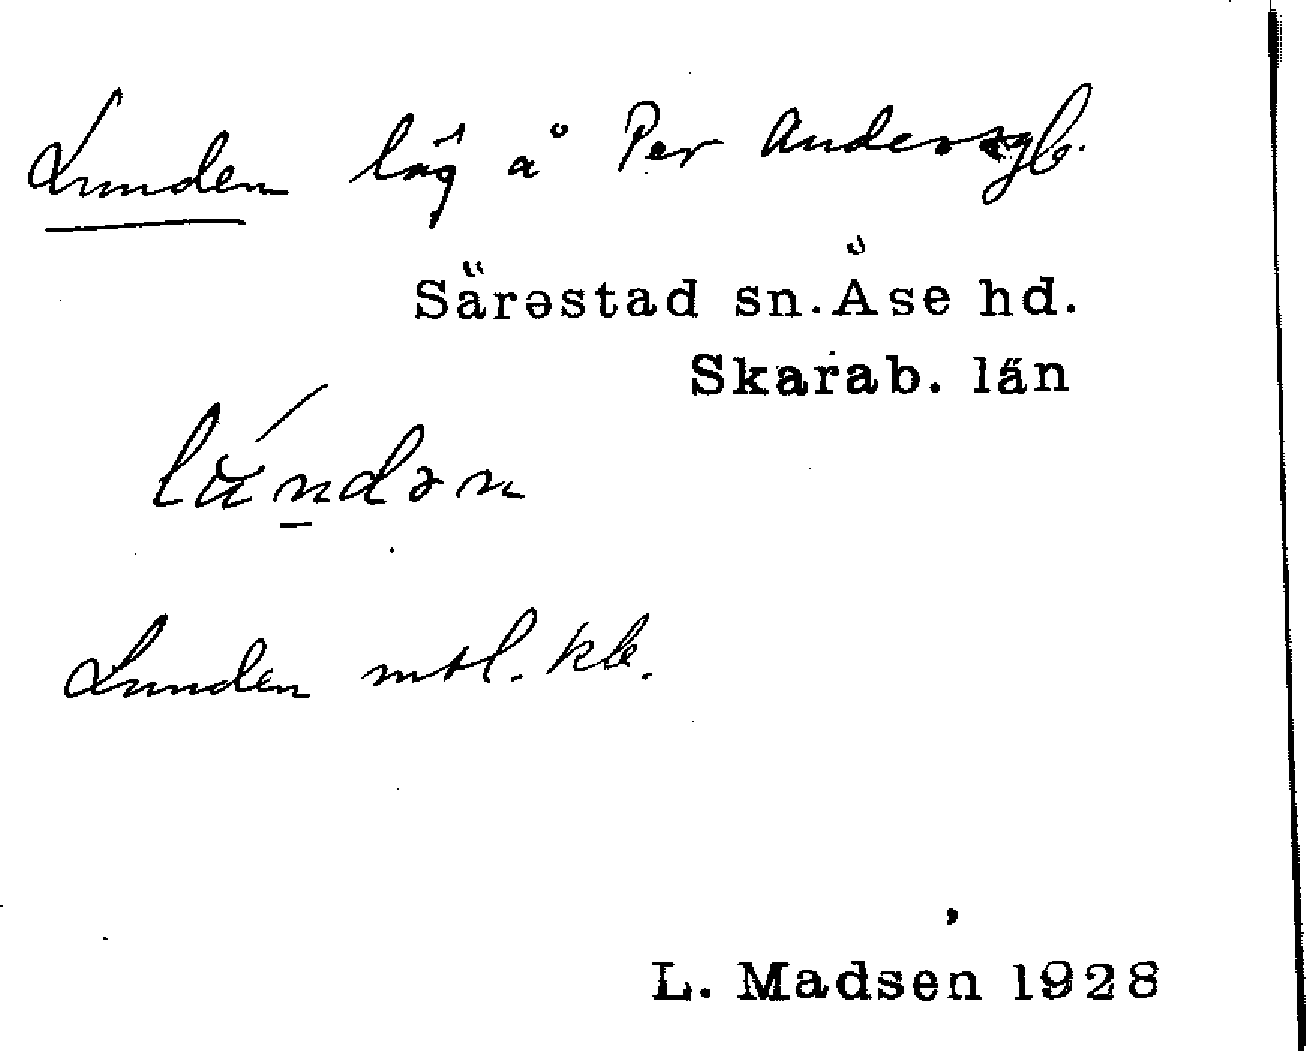 Lunden låg å Per Andersgb.
Särestad sn. Åse hd.
Skarab. län
lú̠ndən
Lunden mtl. kk.
L. Madsen 1928